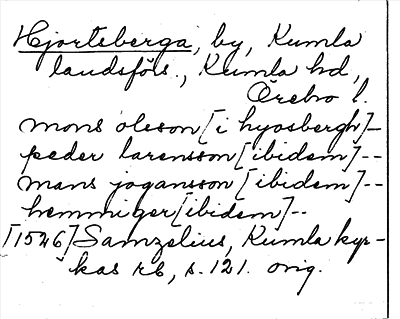 Hjorteberga, by, Kumla
landsförs., Kumla hd,
Örebro l.
mons oleson [i hyosbergh]–
peder larensson [ibidem]--
mans jogansson [ibidem]--
hemmiger [ibidem]--
[1546] Samzelius, Kumla kyr-
kas rb, s. 121. orig.